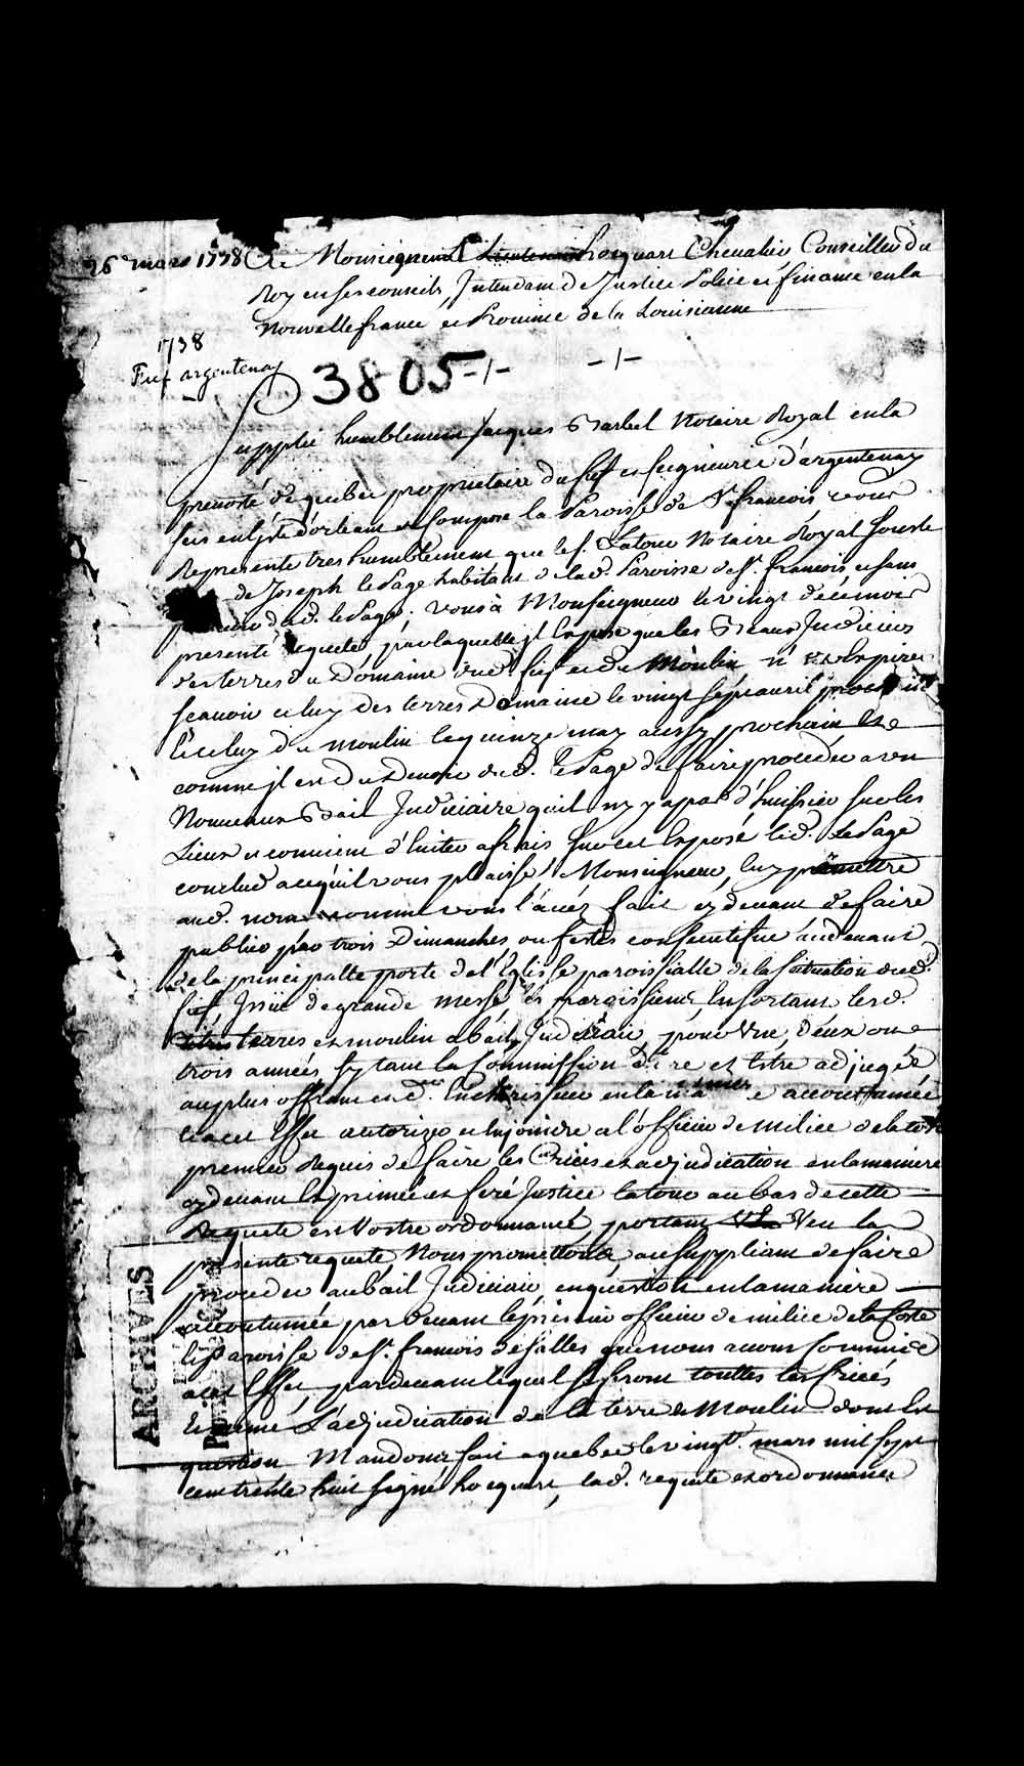 26 mars 1738 A Monseigneur Hocquart Chevalier Conseiller du
Roy en ses conseils, Intendant de Justice Police et finance en la
Nouvelle france et Province de la Louisianne
1738
Fief argentenay
3805
Supplie humblement Jacques Barbel Notaire Royal en la
prevosté de quebec proprietaire du fief et seigneurie d'argentenay
Represente tres humblement que le s. Latour Notaire Royal
de Joseph le Page habitant de lad. Paroisse de st. francois et sans
dud. le Page, vous à Monseigneur le vingt
presenté requete par laquelle jl Expose que les Beaux Judiciers
des terres du Domaine dud fief et du Moulin
scauoir celuy des terres Domaine le vingt sept auril prochain
Et celuy du moulin le quinze may aussy prochain
comme jl est du deuoir dud. le Page de faire proceder a un
Nouveaux Bail Judiciaire quil ny y a pas d'huissier sur les
Lieux et conuient d'euiter a frais sur cet Exposé led. Le Page
conclud acequil vous plaise Monseigneur, luy permettre
aud. nom comme vous l'auez fait cy deuant de faire
publier par trois Dimanches ou festes consecutifue audeuant
de la principalle porte de l'Eglise paroissialle de la situation dud.
fief Issüe de grande messe les paroissiens En sortant lesd.
terres et moulin a bail Judiciaire, pour une, deux ou
trois années
au plus offrant et d. Encherisseur en la maniere accoutumée
et a cet Effet autorizer et Enjoindre a l'officier de milice de la coste
premier Requis de faire les Criées et adjudication en la maniere
cy deuant Exprimée et feré Justice latour au bas de cette
Requete est Vostre ordonnance, portant Veu la
presente requete, Nous promettons au suppliant de faire
proceder au bail Judiciaire en question en la maniere
accoutumée par deuant le premier officier de milice de la Coste
et paroisse de st. francois de salles que nous auons Commis
a cet Effet pardeuant lequel se feront touttes les Criées
Et mesme L'adjudication de la terre et Moulin dont Est
question Mandons fait a quebec le vingt mars mil sept
cent trente huit signé hocquart, lad. requete et ordonnance
ARCHIVES